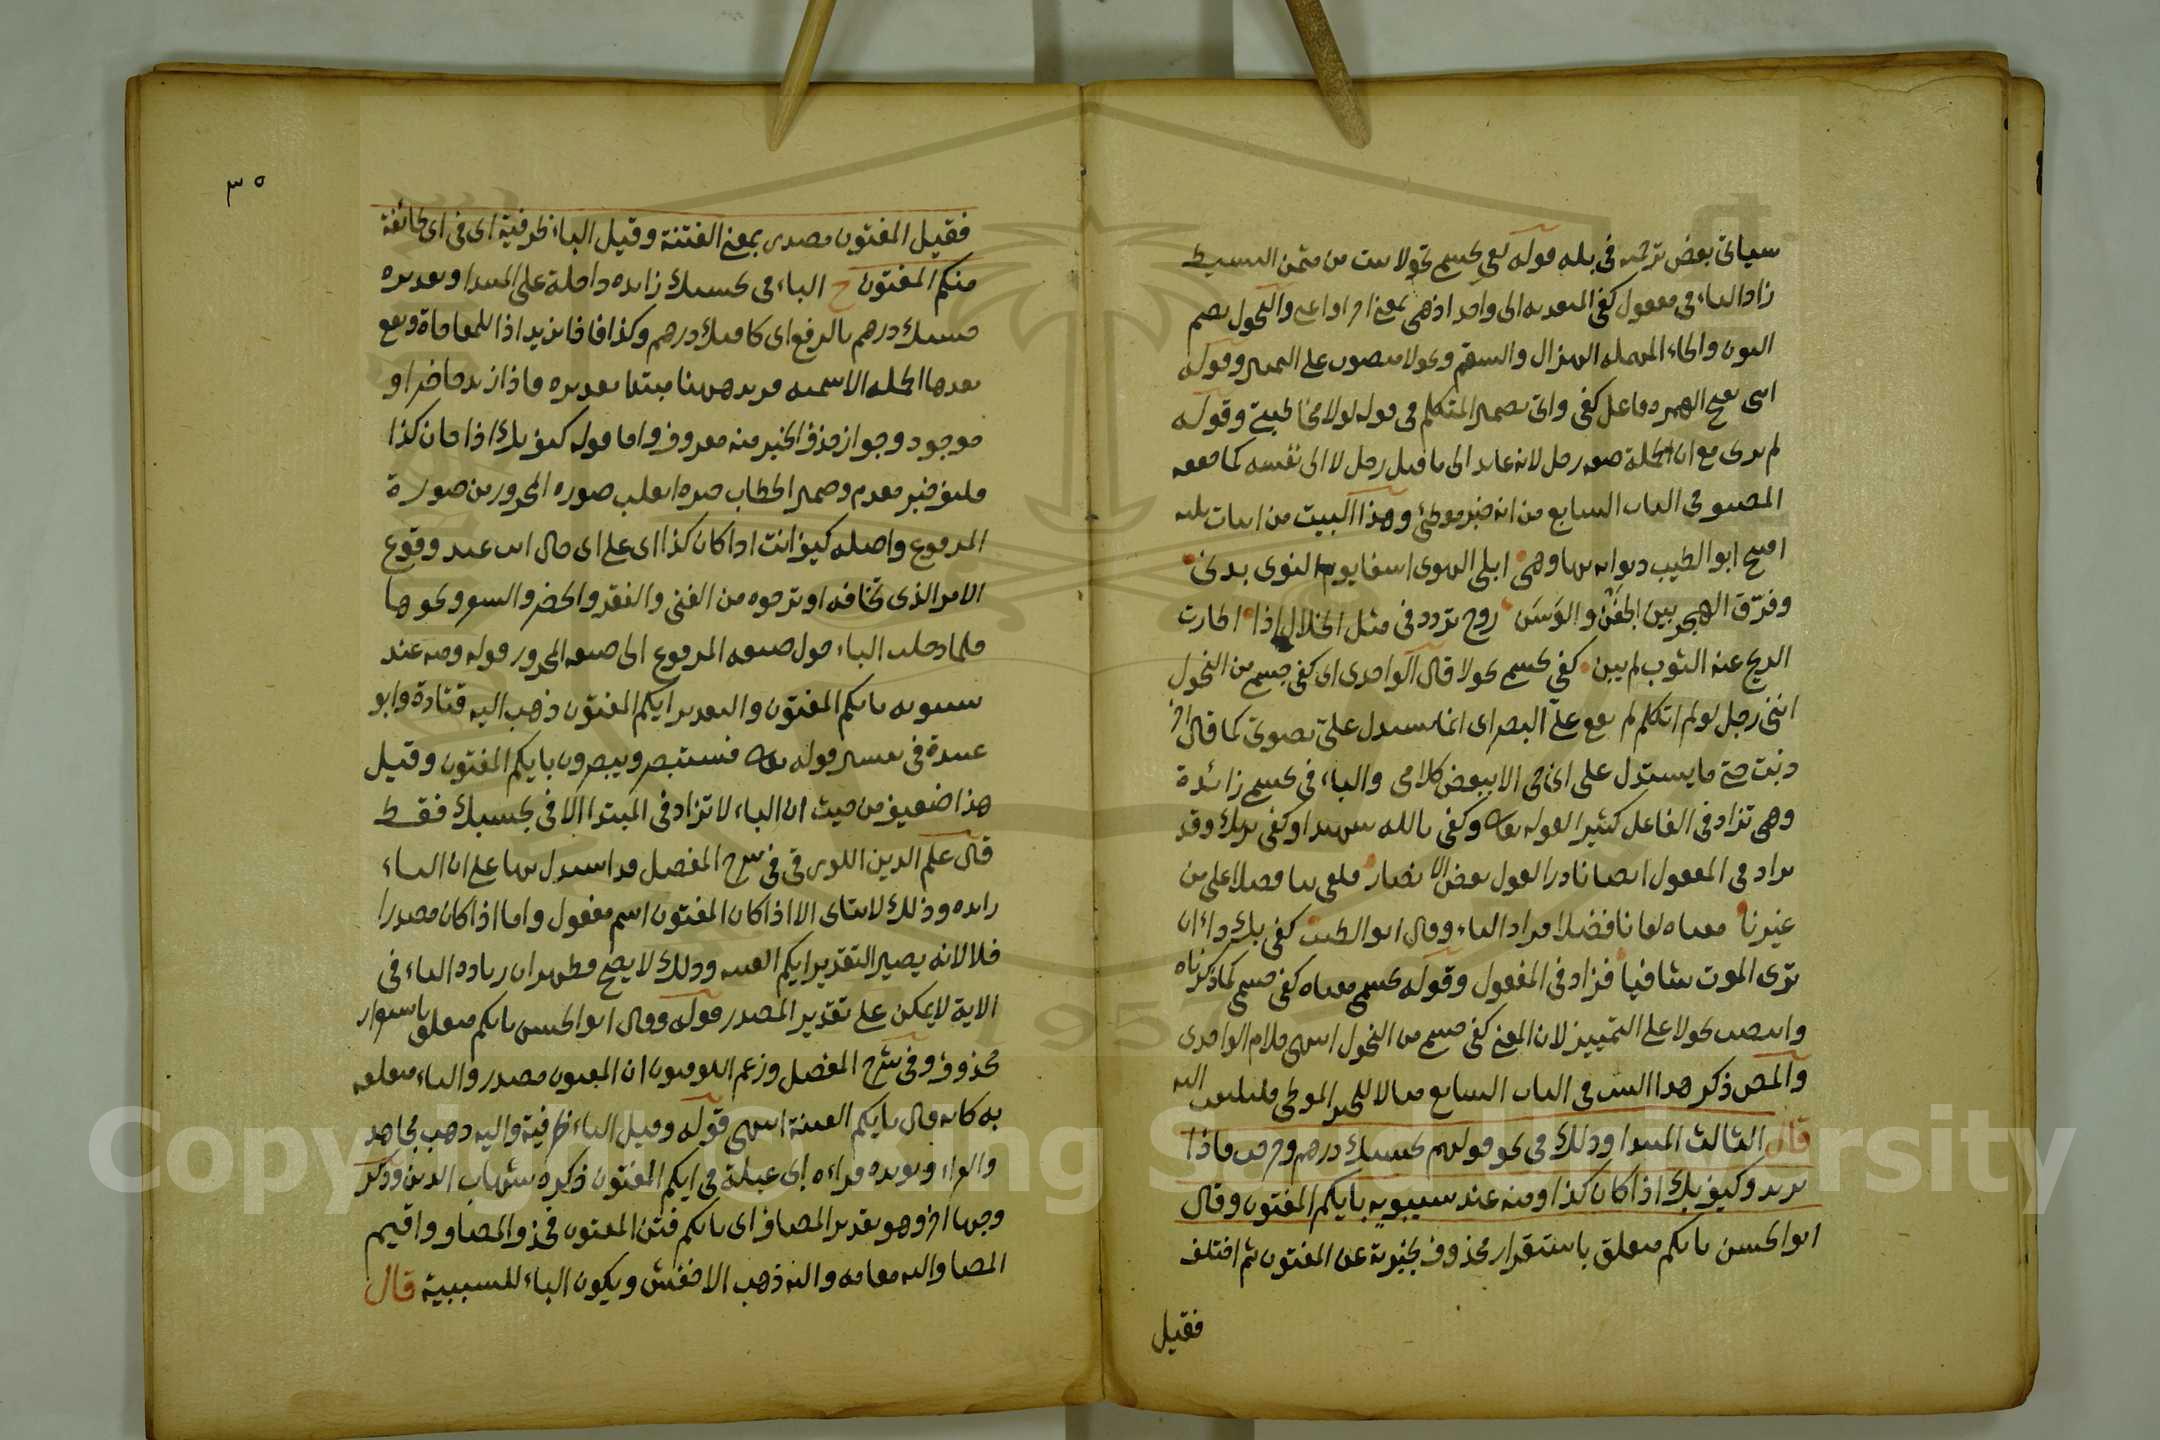 سيأتي بعض ترجمته في بله قوله كفى بجسمي نحولا بيت من مثمن البسيط
زاد الباء في مفعول كفى المتعدية الى واحد اذ هي بمعنى اجزا واغنى والنحول بضم
النون والحاء المهملة الهزال والسقم ونحولا منصوب على التمييز وقوله
انني بفتح الهمزة فاعل كفى واتى بضمير المتكلم في قوله لولا مخاطبتي وقوله
لم ترني مع ان الجملة صفة رجل لانه عائد الى ما قبل رجل لا الى نفسه كما حققه
المصنف في الباب السابع من انه خبر موطئ وهذا البيت من ابيات ثلثة
افتتح ابو الطيب ديوانه بها وهي ابلى الهوى اسفا يوم النوى بدني
وفرّق الهجر بين الجفن والوسن روح تردد في مثل الخلال اذا اطارت
الريح عنه الثوب لم يبن كفى بجسمي نحولا قال الواحدي اي كفى جسمي من النحول
انني رجل لو لم اتكلم لم يقع علي البصر اي انما يستدل علي بصوتي كما قال اخر
ذبت حتى ما يستدل على اني حي الا ببعض كلامي والباء في بجسمي زائدة
وهي تزاد في الفاعل كثيرا لقوله تعالى وكفى بالله شهيدا وكفى بربك وقد
تزاد في المفعول ايضا نادرا لقول بعض الانصار فكفى بنا فضلا على من
غيرنا معناه كفانا فضلا فزاد الباء وقال ابو الطيب كفى بك داء ان
ترى الموت شافيا فزاد في المفعول وقوله بجسمي معناه كفى جسمي كما ذكرناه
وانتصب نحولا على التمييز لان المعنى كفى جسمي من النحول انتهى كلام الواحدي
والمص ذكر هذا البيت في الباب السابع مثالا للخبر الموطئ فليلتفت اليه
قال الثالث المبتدا وذلك في نحو قولهم بحسبك درهم وخرجت فاذا
بزيد وكيف بك اذا كان كذا ومنه عند سيبويه بايكم المفتون وقال
ابو الحسن بايكم متعلق باستقرار محذوف مخبر به عن المفتون ثم اختلف
فقيل
٣٥
فقيل المفتون مصدر بمعنى الفتنة وقيل الباء ظرفية اي في اي طائفة
منكم المفتون ح الباء في بحسبك زائدة داخلة على المبتدا وتقديره
حسبك درهم بالرفع اي كافيك درهم وكذا فاذا بزيد اذا للمفاجاة ويقع
بعدها الجملة الاسمية فزيد ههنا مبتدا تقديره فاذا زيد حاضر او
موجود وجواز حذف الخبر منه معروف واما قوله كيف بك اذا كان كذا
فكيف خبر مقدم وضمير الخطاب مبتدا تقلب صورة المجرور من صورة
المرفوع واصله كيف انت اذا كان كذا اي على اي حال انت عند وقوع
الامر الذي تخافه او ترجوه من الغنى والفقر والحضر والسفر ونحوها
فلما دخلت الباء حول صيغة المرفوع الى صيغة المجرور قوله ومنه عند
سيبويه بايكم المفتون والتقدير ايكم المفتون ذهب اليه قتادة وابو
عبيدة في تفسير قوله تعالى فستبصر ويبصرون بايكم المفتون وقيل
هذا ضعيف من حيث ان الباء لا تزاد في المبتدا الا في بحسبك فقط
قال علم الدين اللورقي في شرح المفصل قد استدل بها على ان الباء
زائدة وذلك لا يتأتى الا اذا كان المفتون اسم مفعول واما اذا كان مصدرا
فلا لانه يصير التقدير ايكم الفتنة وذلك لا يصح فظهر ان زيادة الباء في
الاية لا يمكن على تقدير المصدر قوله وقال ابو الحسن بايكم متعلق باستقرار
محذوف وفي شرح المفصل وزعم الكوفيون ان المفتون مصدر والباء متعلقة
به كانه قال بايكم الفتنة انتهى قوله وقيل الباء ظرفية واليه ذهب مجاهد
والفراء ويؤيده قراءة ابن ابي عبلة في ايكم المفتون ذكره شهاب الدين وذكر
وجها اخر وهو تقدير المضاف اي بايكم فتن المفتون فحذف المضاف واقيم
المضاف اليه مقامه واليه ذهب الاخفش ويكون الباء للسببية قال